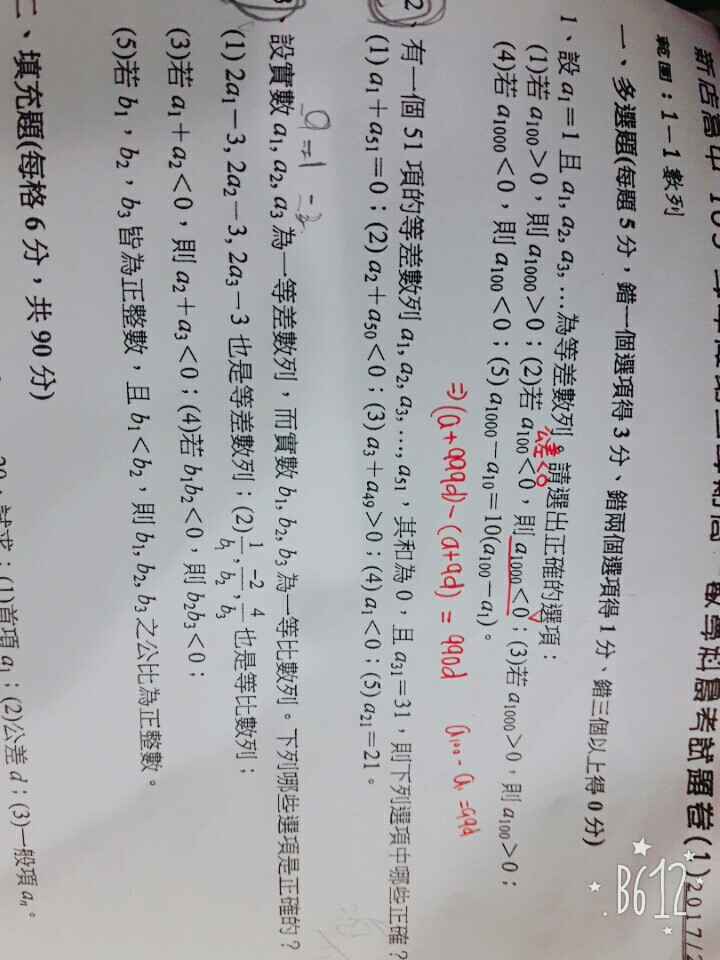 新店高中
學科晨考試題卷(1)2017/2
範圍：1－1 數列
一、多選題(每題 5 分，錯一個選項得 3 分、錯兩個選項得 1 分、錯三個以上得 0 分)
1、設 a₁＝1 且 a₁, a₂, a₃, …為等差數列。請選出正確的選項：
公差<0
(1)若 a₁₀₀＞0，則 a₁₀₀₀＞0；(2)若 a₁₀₀＜0，則 a₁₀₀₀＜0；(3)若 a₁₀₀₀＞0，則 a₁₀₀＞0；
(4)若 a₁₀₀₀＜0，則 a₁₀₀＜0；(5) a₁₀₀₀－a₁₀＝10(a₁₀₀－a₁)。
⇒(a+999d)-(a+9d) = 990d a₁₀₀-a₁=99d
2、有一個 51 項的等差數列 a₁, a₂, a₃, …, a₅₁，其和為 0，且 a₃₁＝31，則下列選項中哪些正確？
(1) a₁＋a₅₁＝0；(2) a₂＋a₅₀＜0；(3) a₃＋a₄₉＞0；(4) a₁＜0；(5) a₂₁＝21。
3、設實數 a₁, a₂, a₃ 為一等差數列，而實數 b₁, b₂, b₃ 為一等比數列。下列哪些選項是正確的？
(1) 2a₁－3, 2a₂－3, 2a₃－3 也是等差數列；(2) 1/b₁, －2/b₂, 4/b₃ 也是等比數列；
(3)若 a₁＋a₂＜0，則 a₂＋a₃＜0；(4)若 b₁b₂＜0，則 b₂b₃＜0；
(5)若 b₁，b₂，b₃ 皆為正整數，且 b₁＜b₂，則 b₁, b₂, b₃ 之公比為正整數。
二、填充題(每格 6 分，共 90 分)
試求：(1)首項 a₁；(2)公差 d；(3)一般項 aₙ。
B612